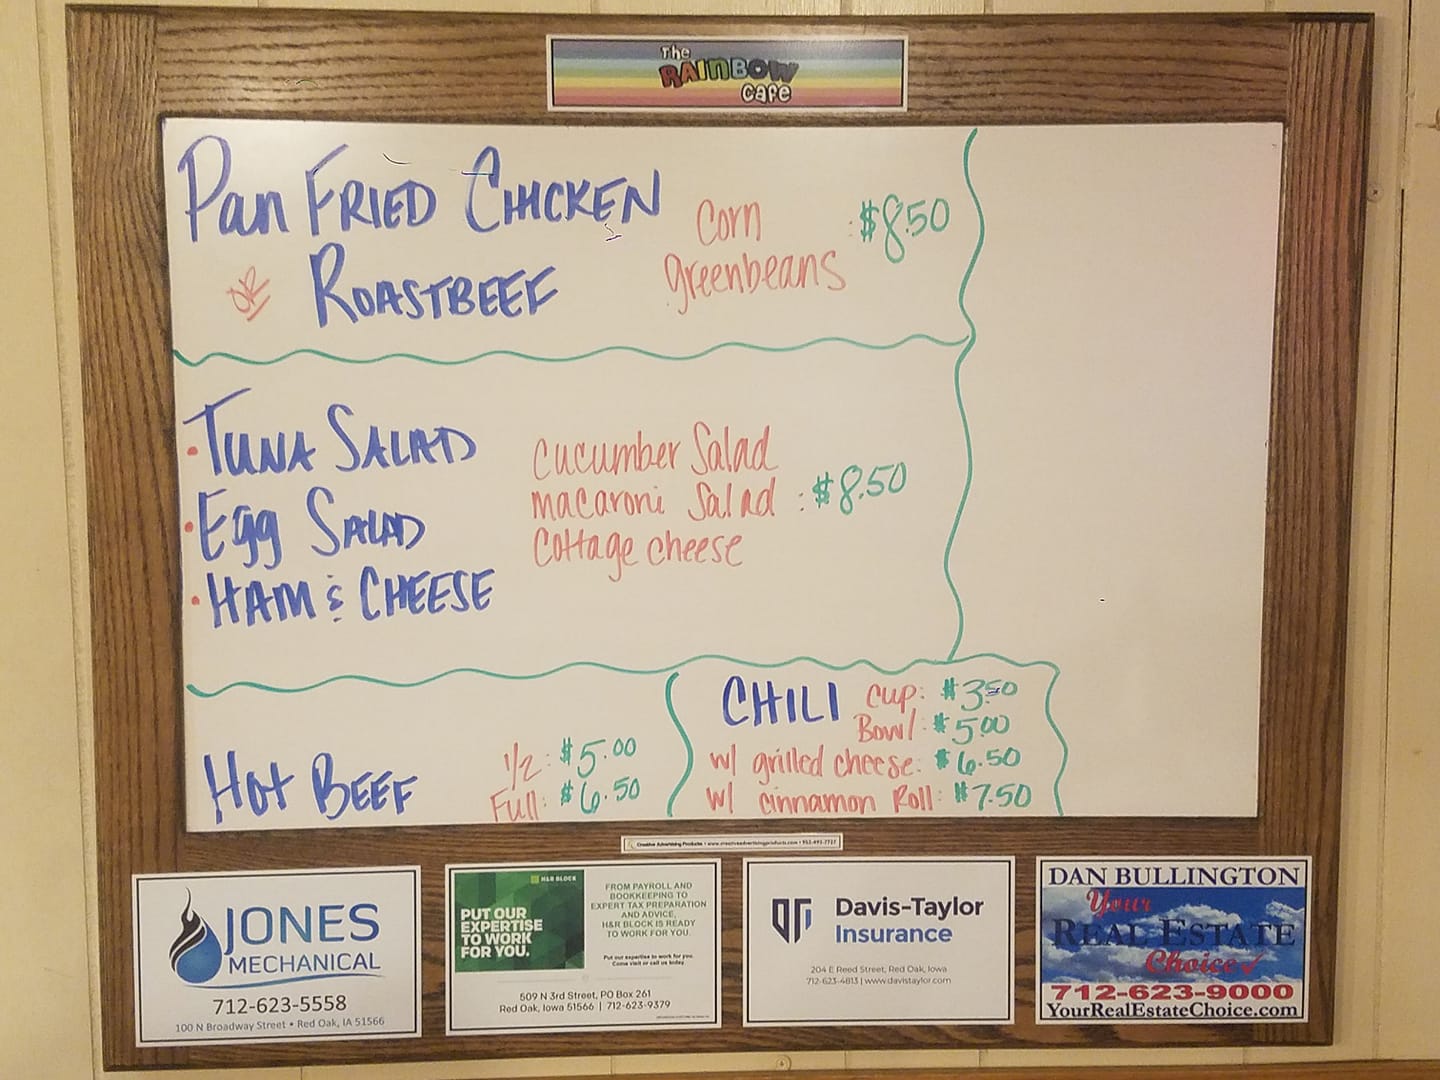 The
RAINBOW
Cafe
Pan FRIED CHICKEN
OR ROASTBEEF
Corn
greenbeans
: $8.50
• TUNA SALAD
• Egg SALAD
• HAM & CHEESE
cucumber Salad
macaroni Salad : $8.50
cottage cheese
Hot BEEF
1/2: $5.00
Full: $6.50
CHILI
cup: $3.50
Bowl: $5.00
w/ grilled cheese: $6.50
w/ cinnamon Roll: $7.50
Creative Advertising Products • www.creativeadvertisingproducts.com • 952-495-7727
JONES
MECHANICAL
712-623-5558
100 N Broadway Street • Red Oak, IA 51566
H&R BLOCK
PUT OUR
EXPERTISE
TO WORK
FOR YOU.
FROM PAYROLL AND
BOOKKEEPING TO
EXPERT TAX PREPARATION
AND ADVICE,
H&R BLOCK IS READY
TO WORK FOR YOU.
Put our expertise to work for you.
Come visit or call us today.
509 N 3rd Street, PO Box 261
Red Oak, Iowa 51566 | 712-623-9379
Davis-Taylor
Insurance
204 E Reed Street, Red Oak, Iowa
712-623-4813 | www.davistaylor.com
DAN BULLINGTON
Your
REAL ESTATE
Choice
712-623-9000
YourRealEstateChoice.com